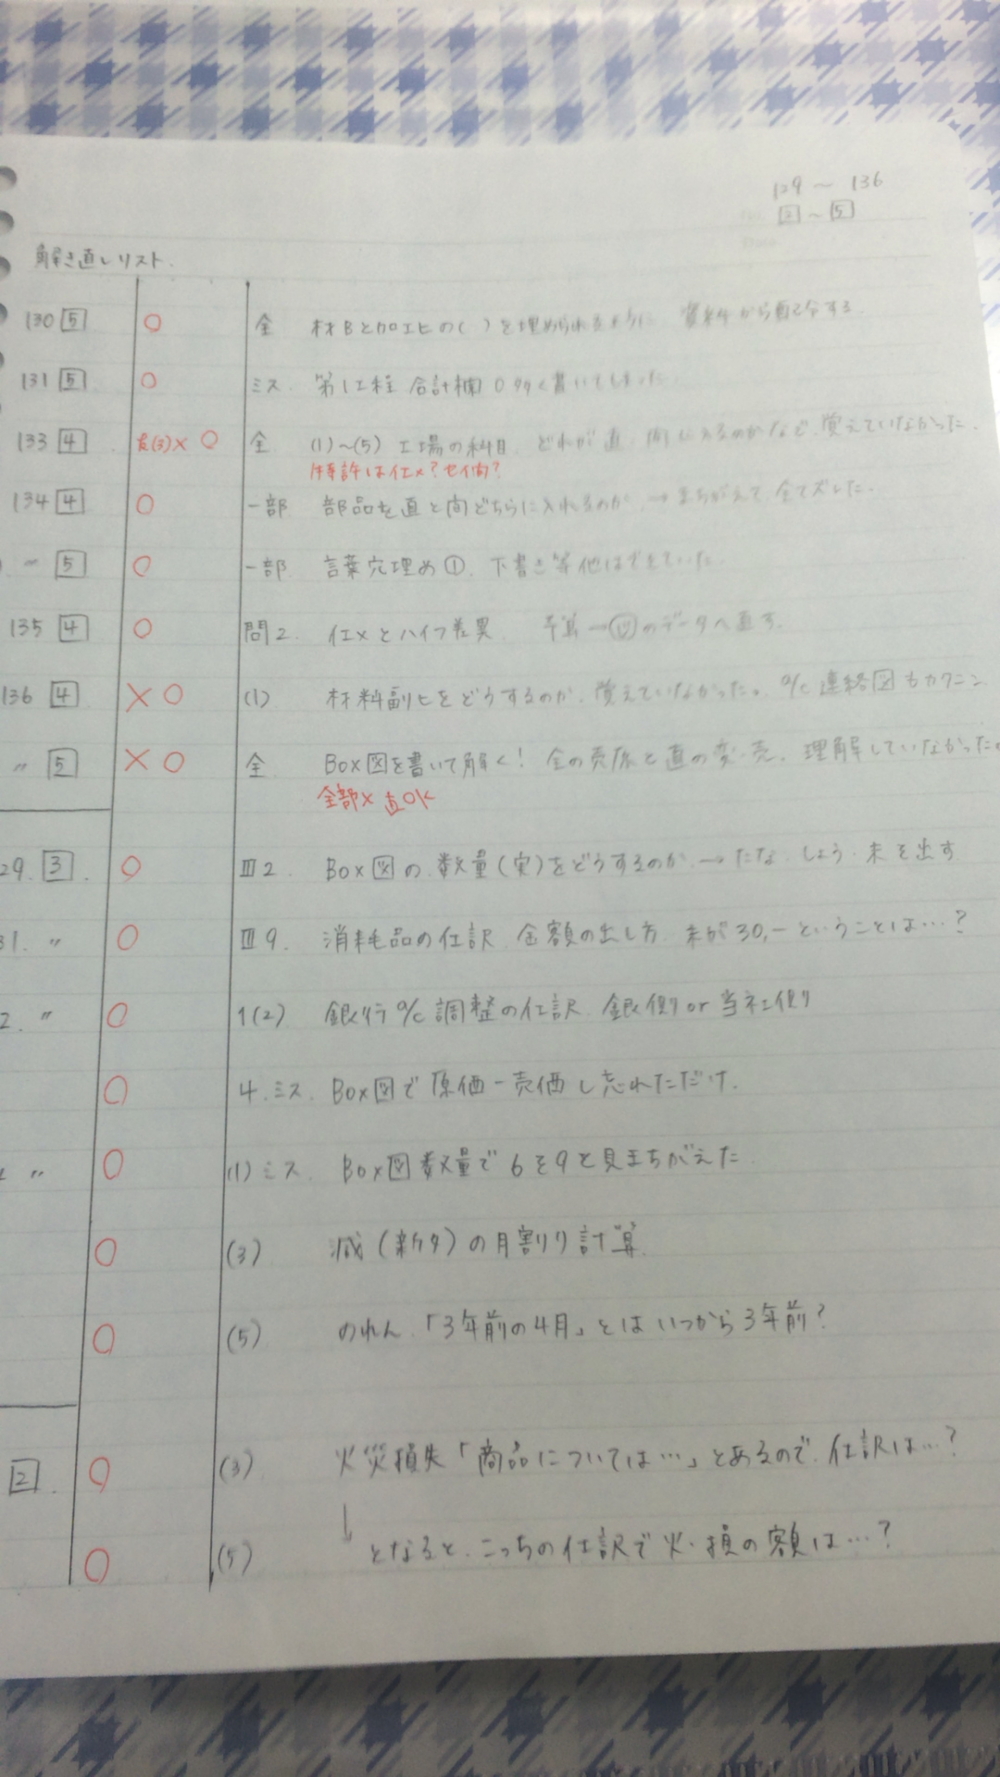 129 ~ 136
2 ~ 5
解き直しリスト.
130 5 ○ 全 材Bと加工ヒの( )を埋められるように 資料から自分する
131 5 ○ ミス. 第1工程 合計欄 書いてしまった
133 4 (3)× ○ 全 (1)~(5) 工場の科目 どれが直、間に入るのかなど、覚えていなかった.
特許は仕×?セイ間?
134 4 ○ 一部 部品を直と間どちらに入れるのか → まちがえて全てズレた.
〃 5 ○ 一部 言葉穴埋め①. 下書き等他はできていた.
135 4 ○ 問2. 仕×とハイフ差異. 予算→ のデータへ直す.
136 4 × ○ (1) 材料副ヒをどうするのか. 覚えていなかった。 a/c 連絡図もカクニン
〃 5 × ○ 全 Box図を書いて解く! 全の売原と直の変・売. 理解していなかった。
全部× 直OK
29. 3. ○ Ⅲ2. Box図の数量(実)をどうするのか. → たな しょう・末を出す
31. 〃 ○ Ⅲ9. 消耗品の仕訳 金額の出し方. 末が30,−ということは…?
2. 〃 ○ 1(2) 銀行a/c調整の仕訳. 銀側or当社側
○ 4. ミス. Box図で原価−売価し忘れただけ.
〃 ○ (1)ミス. Box図数量で6を9と見まちがえた.
○ (3) 減(新タ)の月割り計算
○ (5) のれん.「3年前の4月」とはいつから3年前?
2. ○ (3) 火災損失「商品については…」とあるので. 仕訳は…?
○ (5) ↓となると、こっちの仕訳で火・損の額は…?